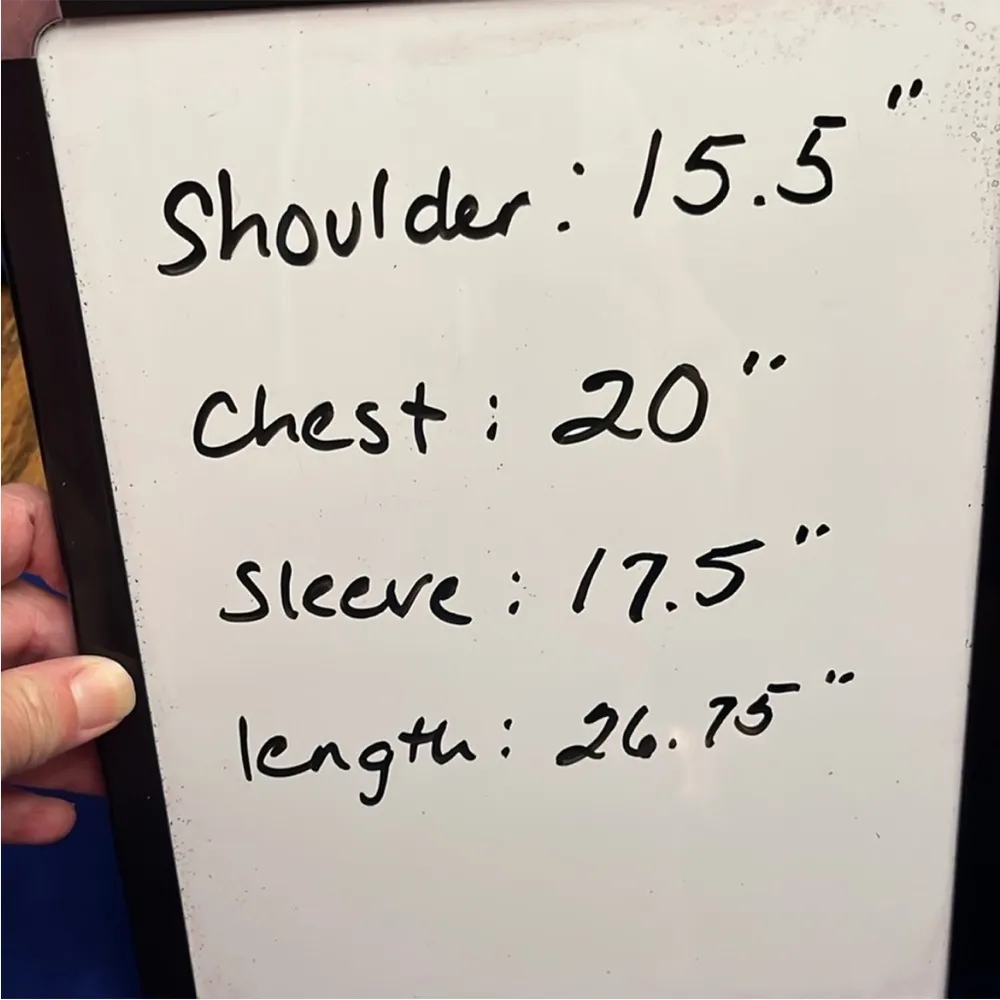 Shoulder: 15.5"
Chest: 20"
Sleeve: 17.5"
length: 26.75"